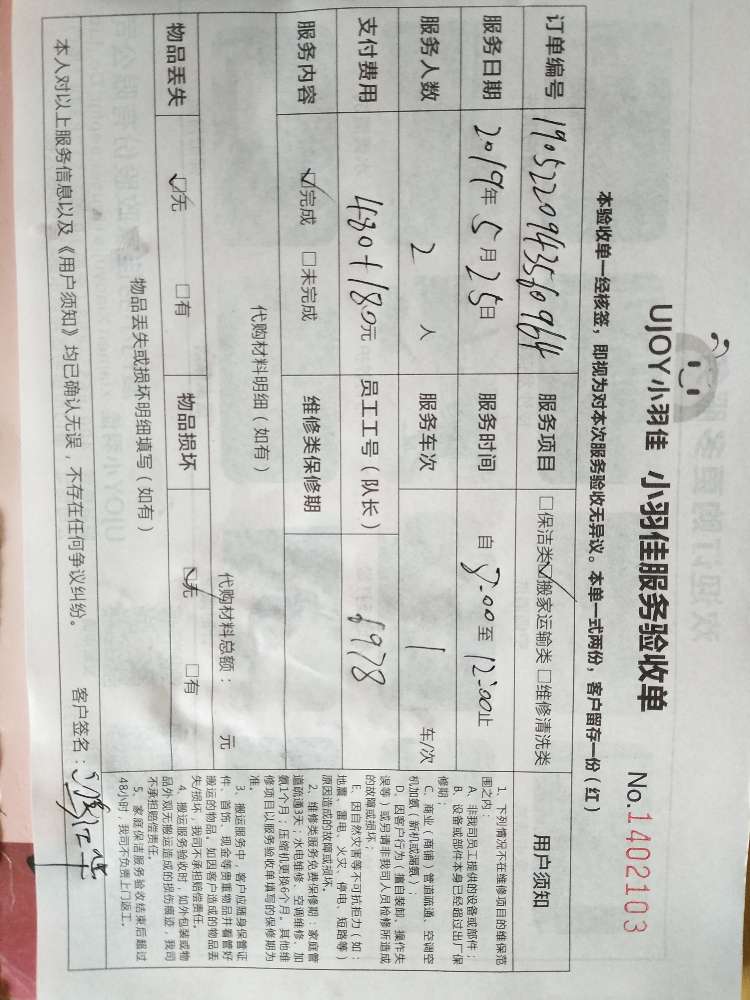 UJOY小羽佳 小羽佳服务验收单 No.1402103
本验收单一经核签，即视为对本次服务验收无异议。本单一式两份，客户留存一份（红）
订单编号 1905220943560964 服务项目 □保洁类☑搬家运输类 □维修清洗类
服务日期 2019年5月25日 服务时间 自8:00至12:00止
服务人数 2 人 服务车次 1 车/次
支付费用 480+180元 员工工号（队长） 6978
服务内容 ☑完成 □未完成 维修类保修期
代购材料明细（如有）
代购材料总额： 元
物品丢失 ☑无 □有 物品损坏 ☑无 □有
物品丢失或损坏明细填写（如有）
本人对以上服务信息以及《用户须知》均已确认无误，不存在任何争议纠纷。 客户签名：
用户须知
1、下列情况不在维修项目的维保范
围之内：
A、非我司员工提供的设备或部件；
B、设备或部件本身已经超过出厂保
修期；
C、商业（商铺）管道疏通、空调空
机加氨（新机或漏氨）；
D、因客户行为（擅自装卸、操作失
误等）或另请非我司人员检修所造成
的故障或损坏；
E、因自然灾害等不可抗拒力（如：
地震、雷电、火灾、停电、短路等）
原因造成的故障或损坏。
2、维修类服务免费保修期：家庭管
道疏通3天；水电维修、空调维修、加
氨1个月；压缩机更换6个月。其他维
修项目以服务验收单填写的保修期为
准。
3、搬运服务中，客户应随身保管证
件、首饰、现金等贵重物品并看管好
搬运的物品，如因客户造成的物品丢
失/损坏，我司不承担赔偿责任。
4、搬运服务验收时，如外包装或物
品外观无搬运造成的损伤痕迹，我司
不承担赔偿责任。
5、家庭保洁服务验收结束后超过
48小时，我司不负责上门返工。